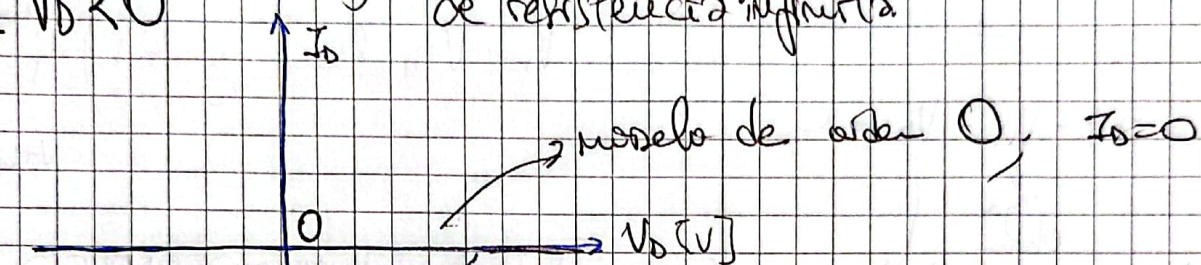 VD < 0 de resistencia infinita
ID
modelo de orden 0, ID=0
0
VD [V]